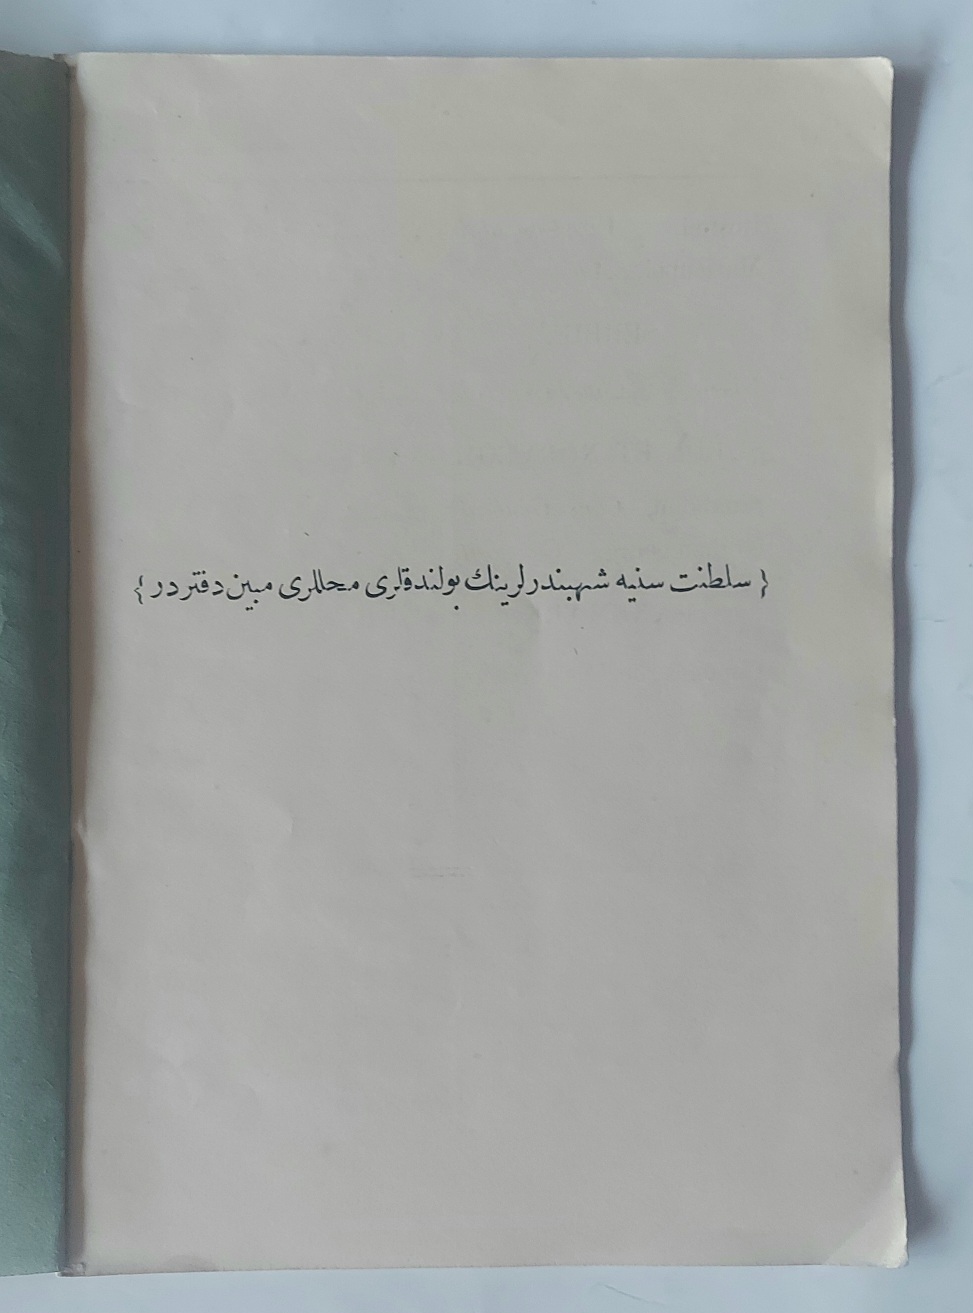 { سلطنت سنیه شهبندرلرینك بولندقلری محللری مبین دفتر در }